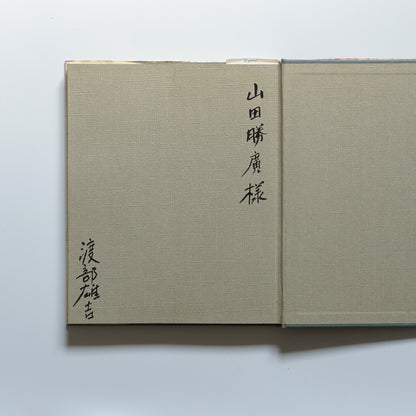 山田勝廣様
渡部雄吉